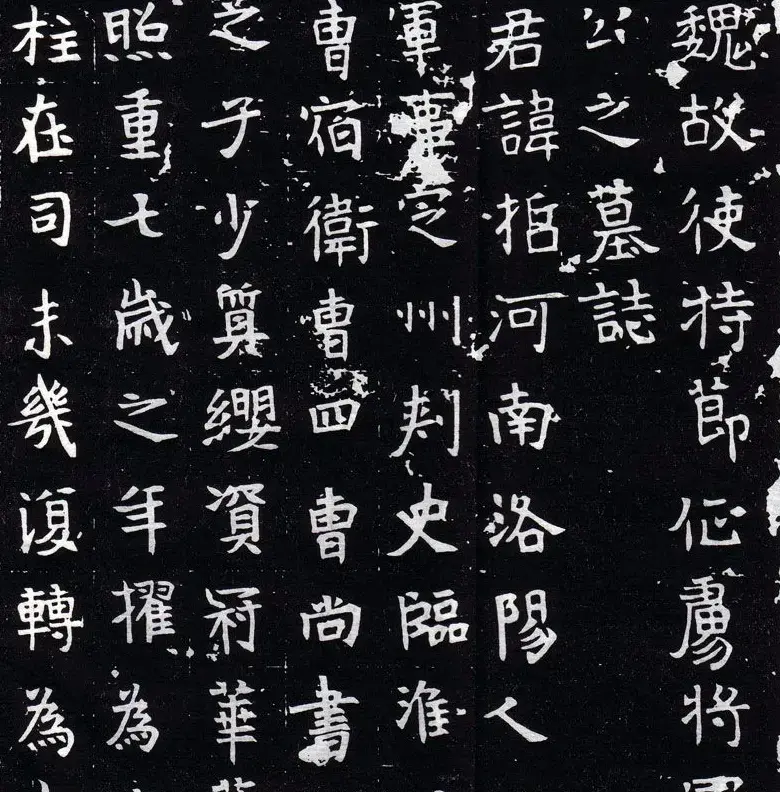 魏故使持節征虜將
公之墓誌
君諱河南洛陽人
軍事定州刺史臨淮
曹宿衛曹四曹尚書
之子少質纓資冠華
照重七歲之年擢為
柱在司未幾復轉為